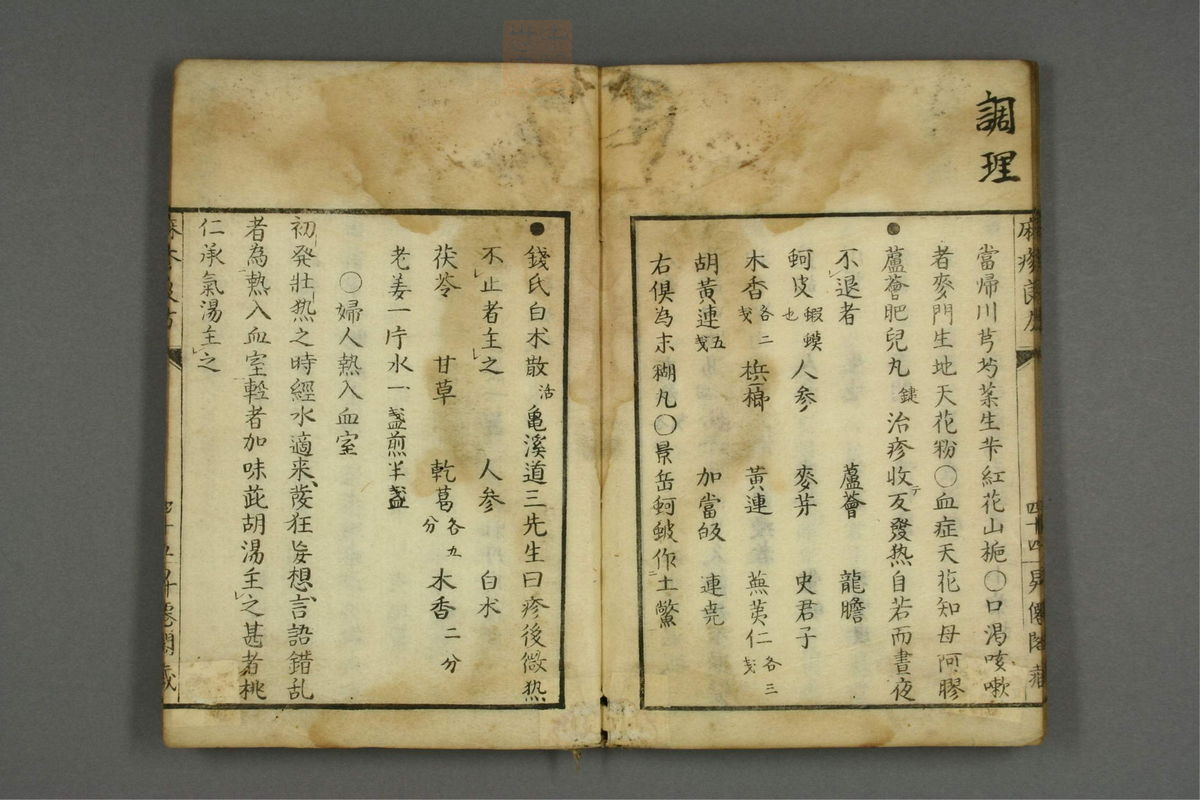 調理
當帰川芎芍薬生芐紅花山梔〇口渇咳嗽
者麥門生地天花粉〇血症天花知母阿膠
●蘆薈肥兒丸 鍵 治疹收テ亙發热自若而晝夜
不退者 蘆薈 龍膽
蚵皮 蝦蟆也 人参 麥芽 史君子
木香 各二戔 梹榔 黃連 蕪荑仁 各三戔
胡黃連 五戔 加當皈 連尭
右俱為末糊丸〇景岳蚵蚾作土鱉
●錢氏白朮散 活 亀溪道三先生曰疹後微热
不止者主之 人参 白朮
茯苓 甘草 乾葛 各五分 木香 二分
老姜一片水一盞煎半盞
〇婦人熱入血室
初発壮热之時經水適来發狂妄想言語錯乱
者為熱入血室輕者加味茈胡湯主之甚者桃
仁承氣湯主之
麻疹良方
四十四
四十五